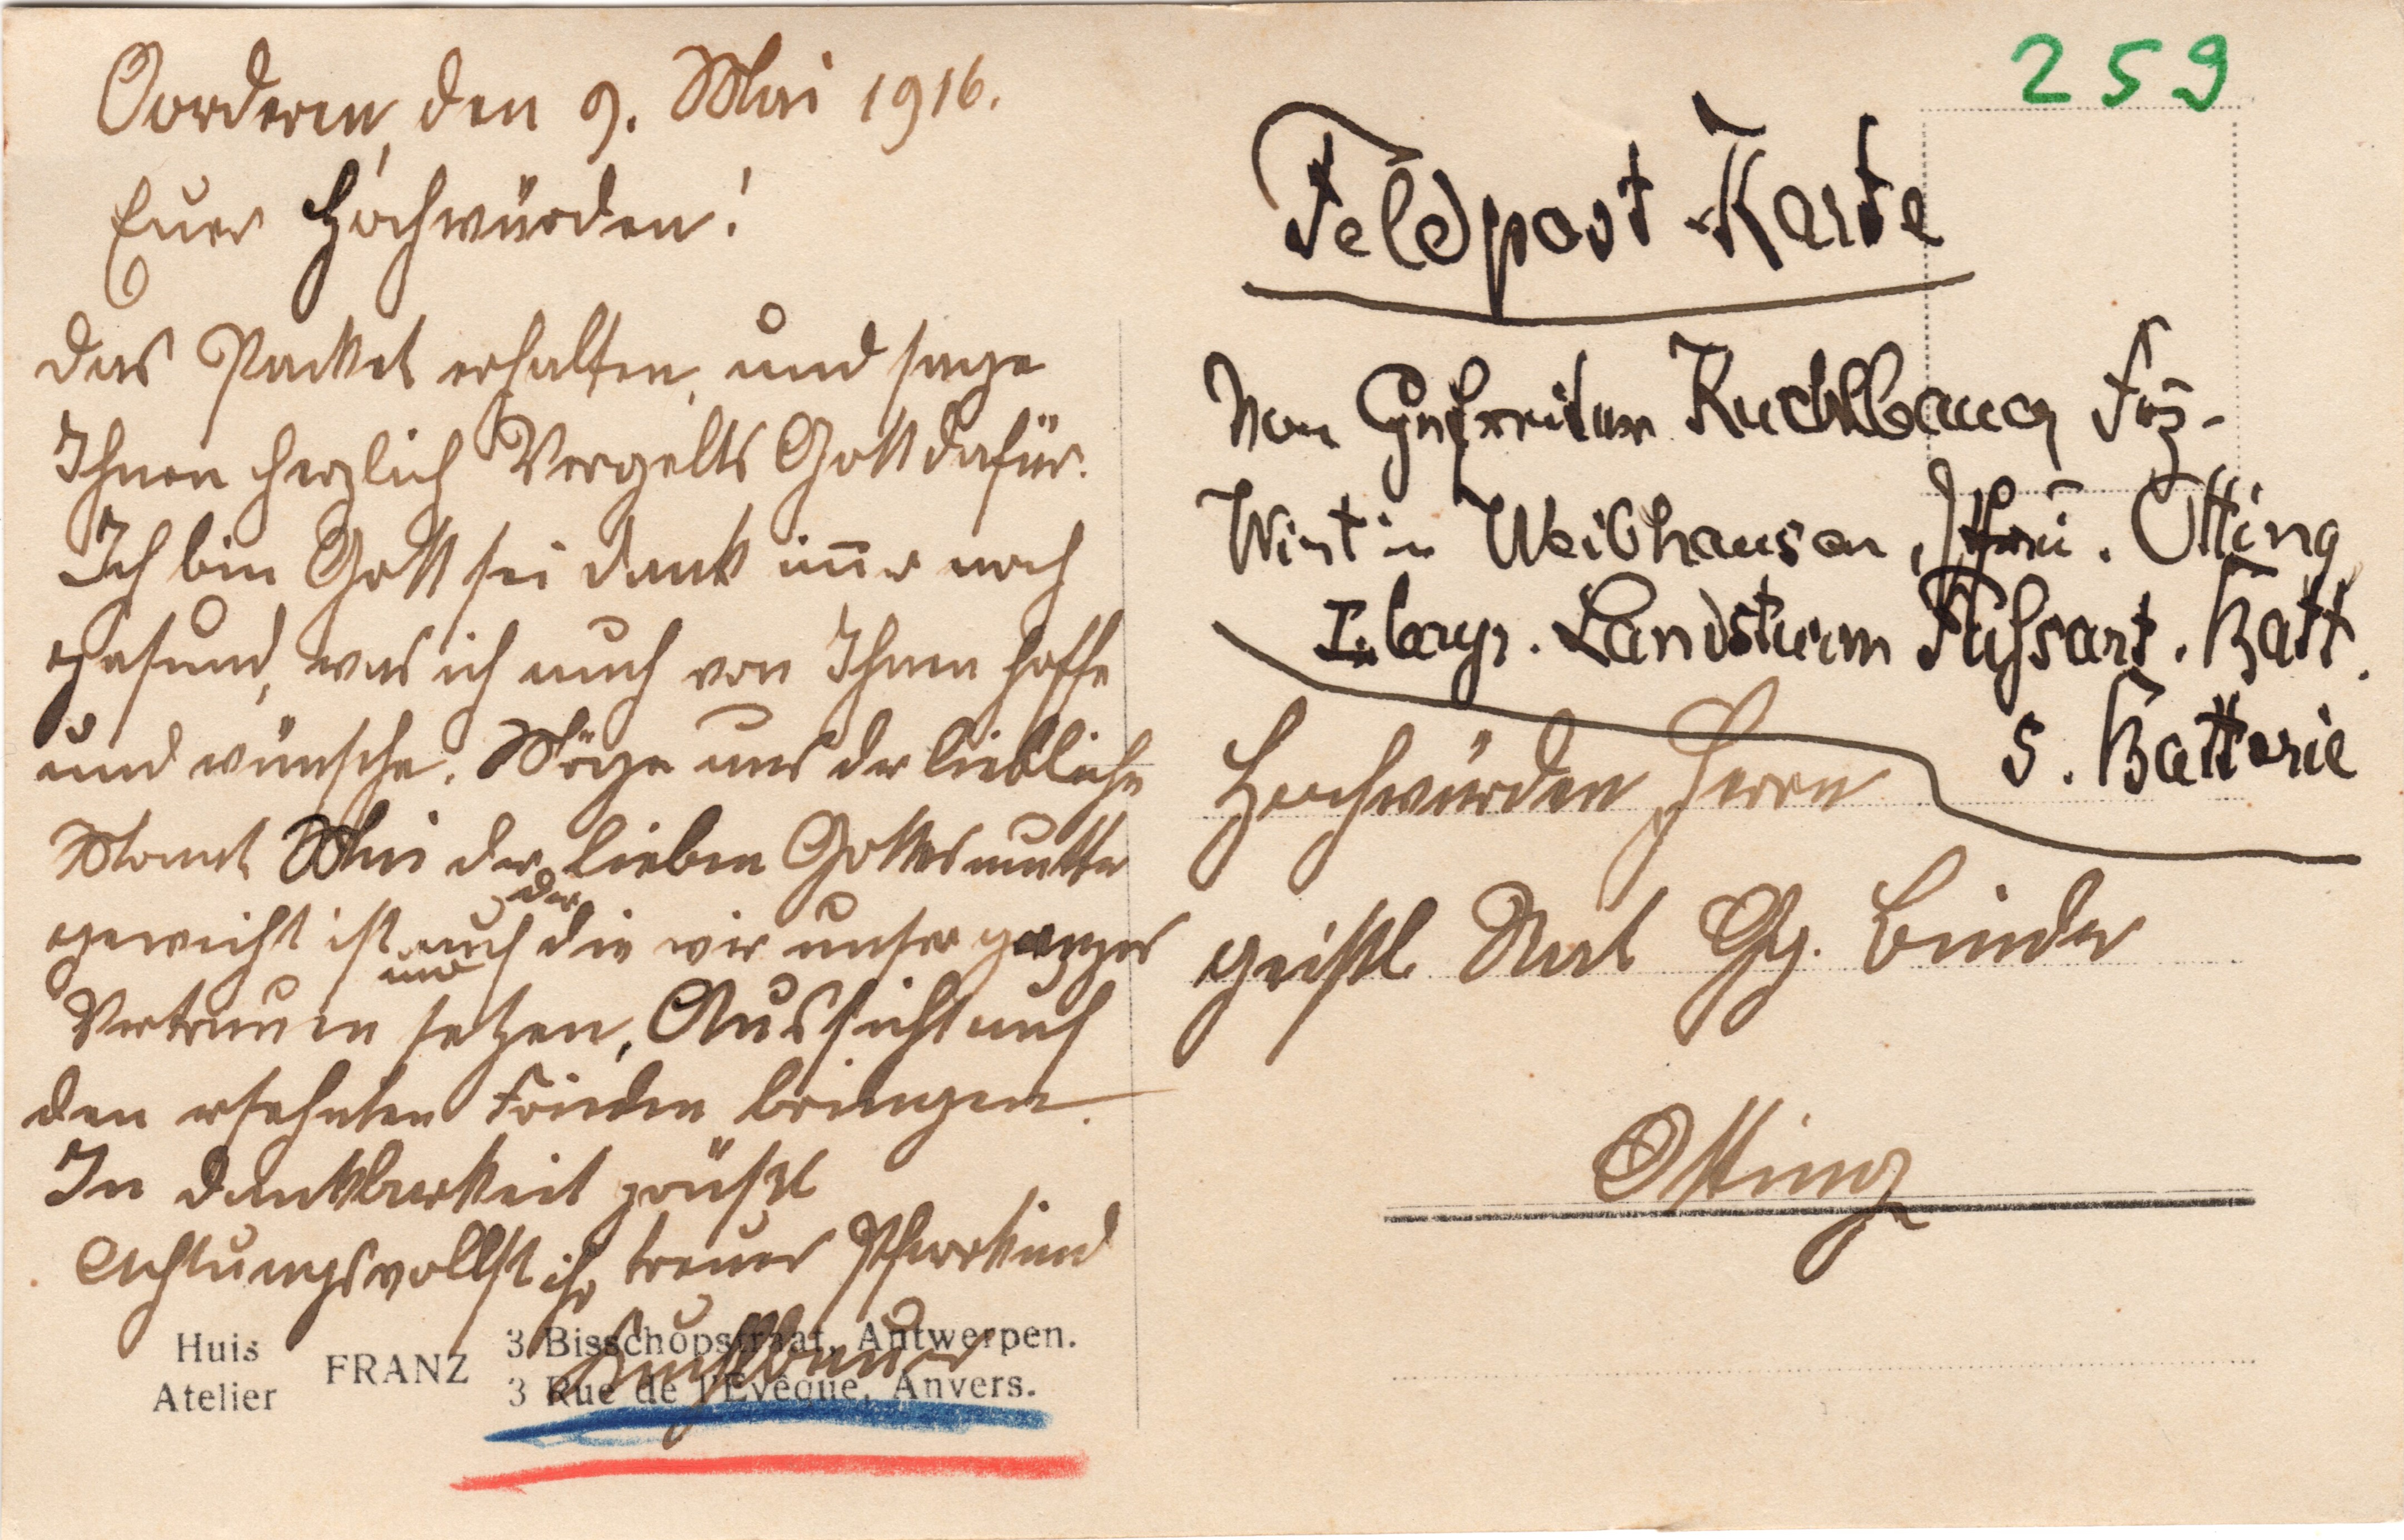 Oorderen, den 9. Mai 1916.
Euer Hochwürden!
das Packet erhalten, und sage
Ihnen herzlich Vergelts Gott dafür.
Ich bin Gott sei dank immer noch
gesund, was ich auch von Ihnen hoffe
und wünsche. Möge uns der liebliche
Monat Mai der lieben Gottesmutter
der
geweicht ist auch die wir unser ganzes
und
Vertrauen setzen, Aussicht auf
den ersehnten Frieden bringen.
In dankbarkeit grüßt
Achtungsvollst ihr treues Pfarrkind
Huis
Atelier
FRANZ
3 Bisschopstraat, Antwerpen.
3 Rue de l'Evêque, Anvers.
259
Feldpost-Karte
Von Gefreiten
Wirt in Weibhausen, Otting
I. bayr. Landsturm Fußsart. Batt.
5. Batterie
Hochwürden Herrn
geistl Rat Gg. Binder
Otting